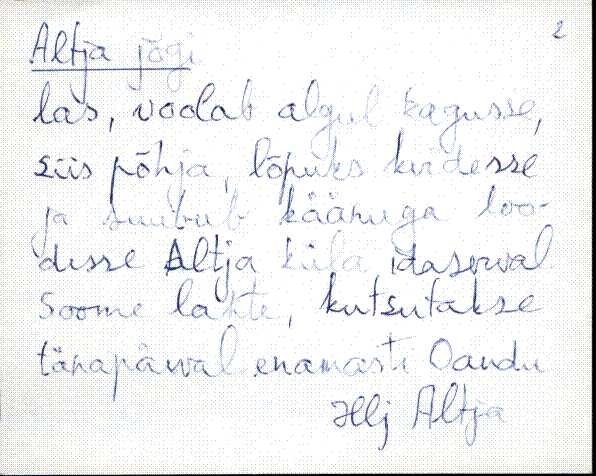 2
Altja jõgi
las, voolab algul kagusse,
siis põhja, lõpuks kirdesse
ja suubub käänuga loo-
desse Altja küla idaserval
Soome lahte, kutsutakse
tänapäeval enamasti Oandu
Hlj Altja